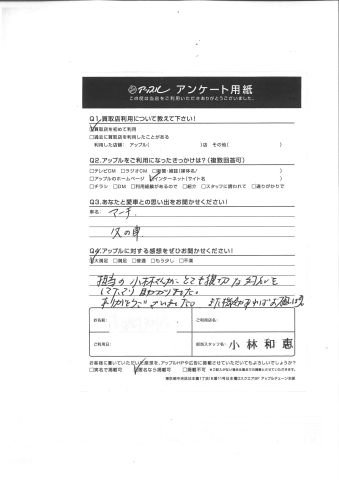 アップル アンケート用紙
この度は当店をご利用いただきありがとうございました。
Q1.買取店利用について教えて下さい!
☑買取店を初めて利用
□過去に買取店を利用したことがある
利用した店舗: アップル( )店 その他( )
Q2.アップルをご利用になったきっかけは?(複数回答可)
□テレビCM □ラジオCM □新聞・雑誌(媒体名/ )
□アップルのホームページ ☑インターネット(サイト名 )
□チラシ □DM □利用経験があるので □紹介 □スタッフに誘われて □通りがかりで
Q3.あなたと愛車との思い出をお聞かせください!
車名: マーチ
父の車
Q4.アップルに対する感想をぜひお聞かせください!
☑大満足 □満足 □普通 □もう少し □不満
担当の小林さんがとても親切な対応を
して下さり助かりました。
ありがとうございました。 また機会があればお願いします
お名前: ご利用店名:
ご利用日: 担当スタッフ名: 小林和恵
お客様に書いていただいた感想を、アップルHPや広告に掲載させていただいてもよろしいでしょうか?
□実名で掲載可 ☑匿名なら掲載可 □掲載不可 ※ご記入がない場合は匿名での掲載とさせていただきます。